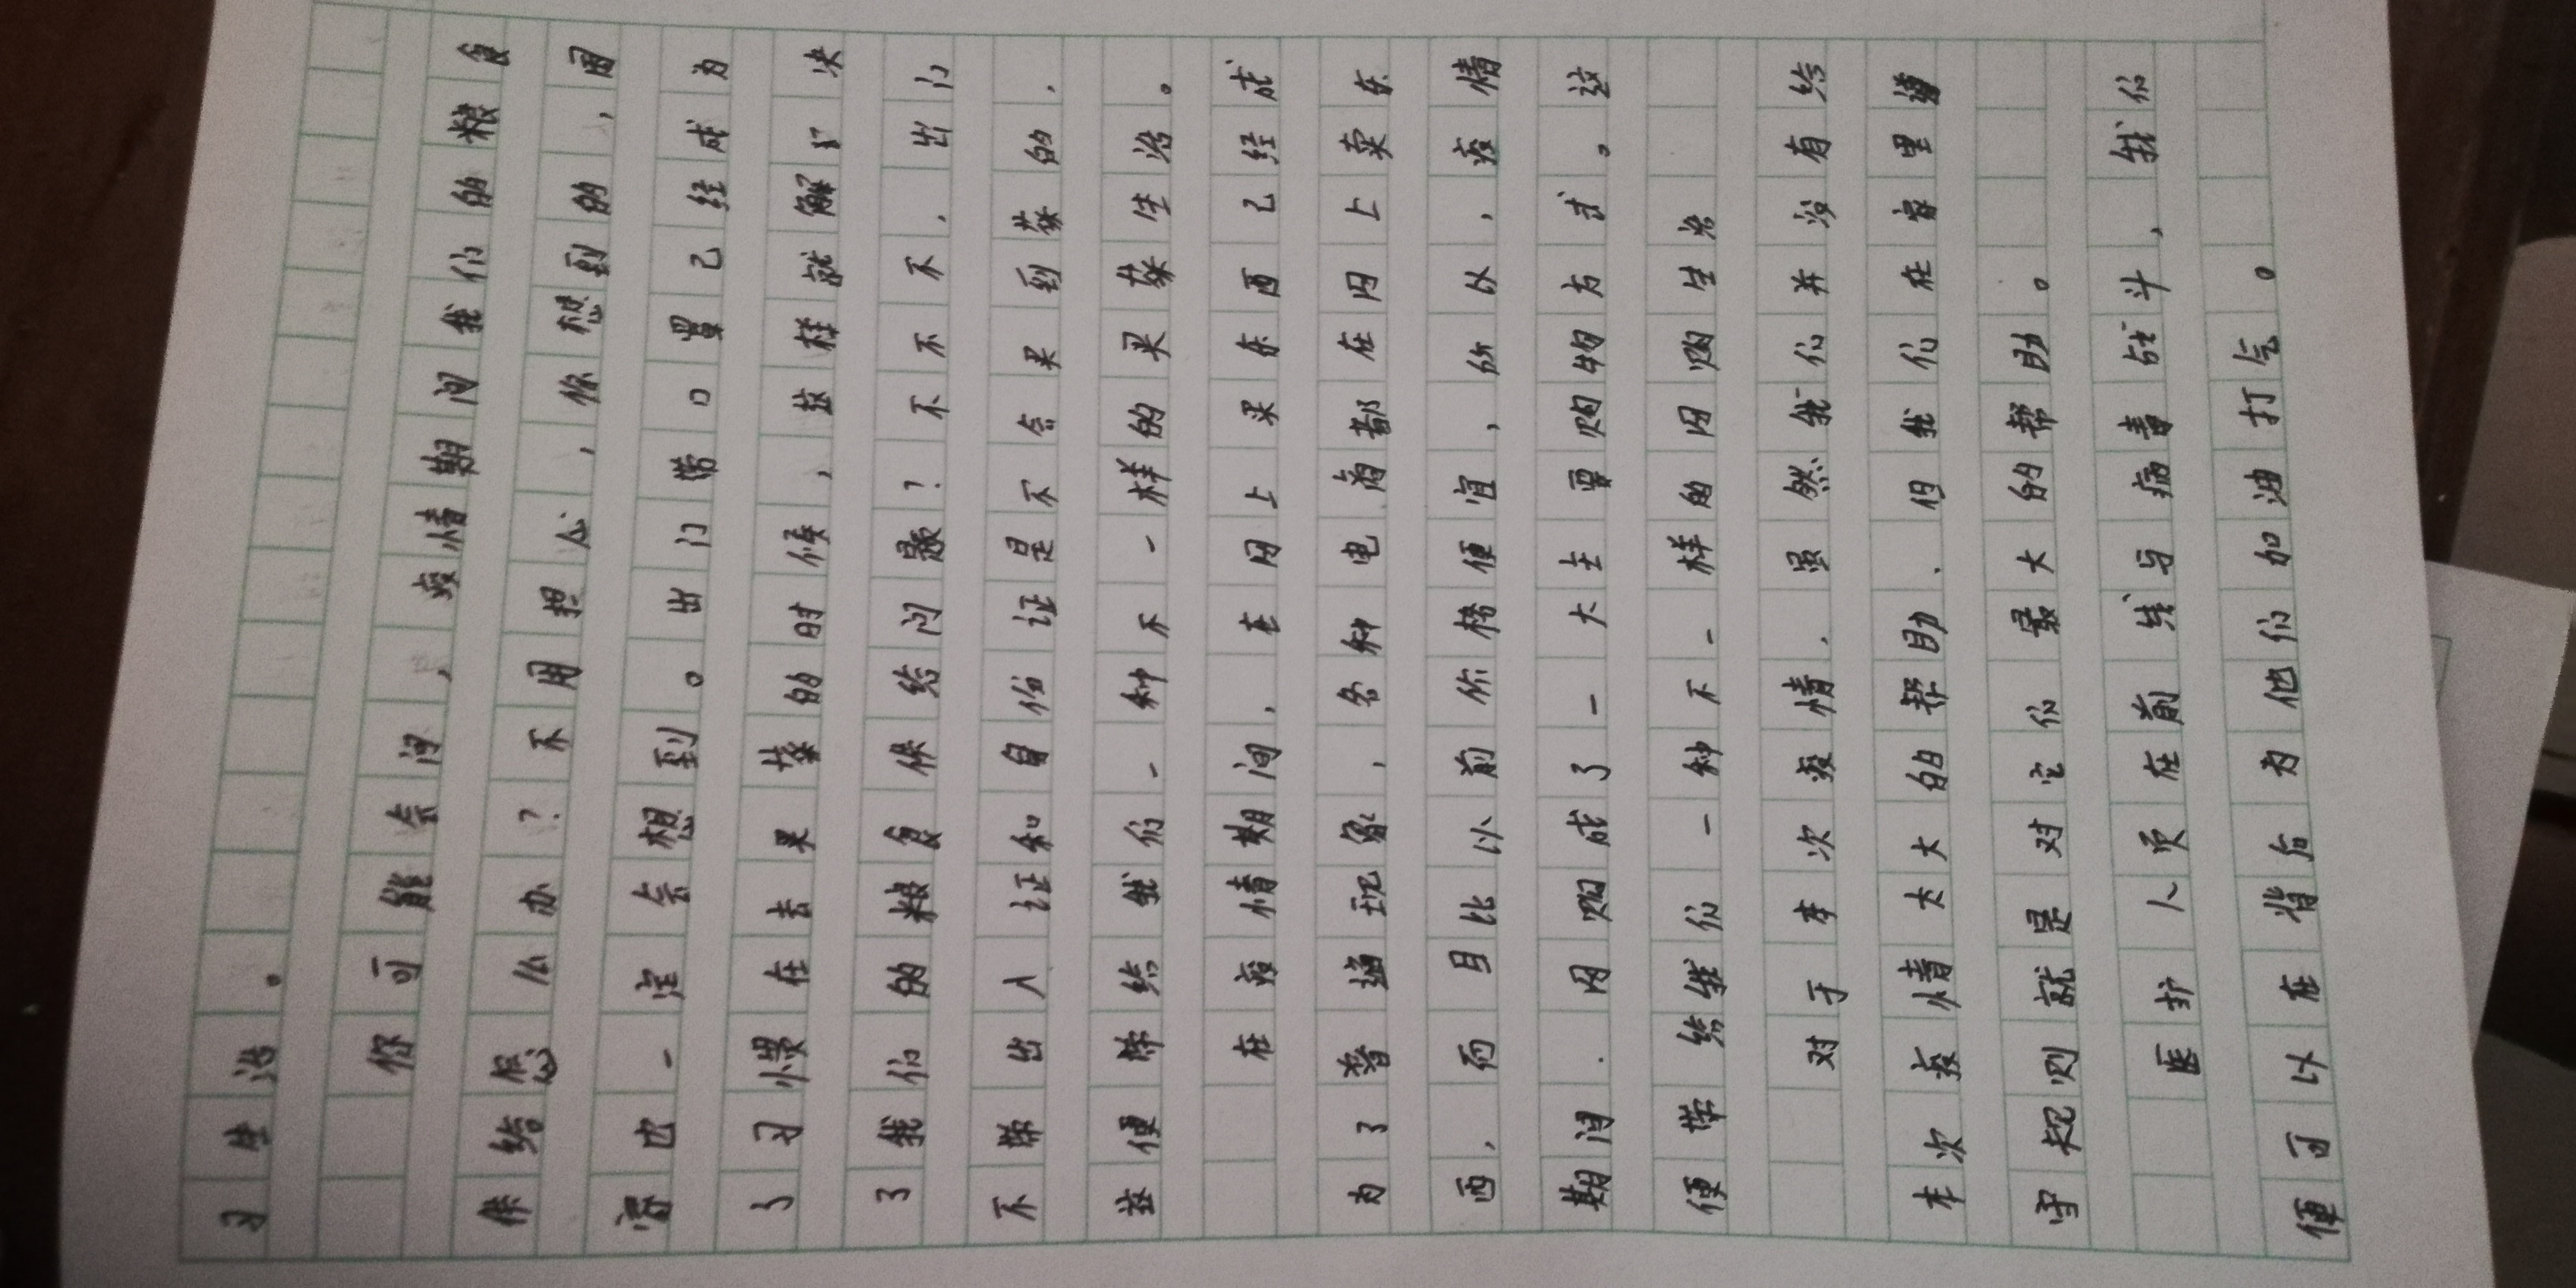 习生活。
你可能会问,疫情期间我们的粮食
供给怎么办?不用担心,你想到的,国
家也一定会想到。出门带口罩已经成为
了习惯在去买菜的时候,这样就解决
了我们的粮食供给问题?不不不,出门
不带出入证和身份证是不会买到菜的,
这便带给我们一种不一样的买菜生活。
在疫情期间,在网上买东西已经成
为了普遍现象,各种电商都在网上卖东
西,而且比以前价格便宜,所以,疫情
期间,网购成了一大主要购物方式。这
便带给我们一种不一样的网购生活
对于本次疫情,虽然我们并没有给
本次疫情大大的帮助,但我们在家里遵
守规则就是对它们最大的帮助。
医护人员在前线与病毒战斗,我们
便可以在背后为他们加油打气。